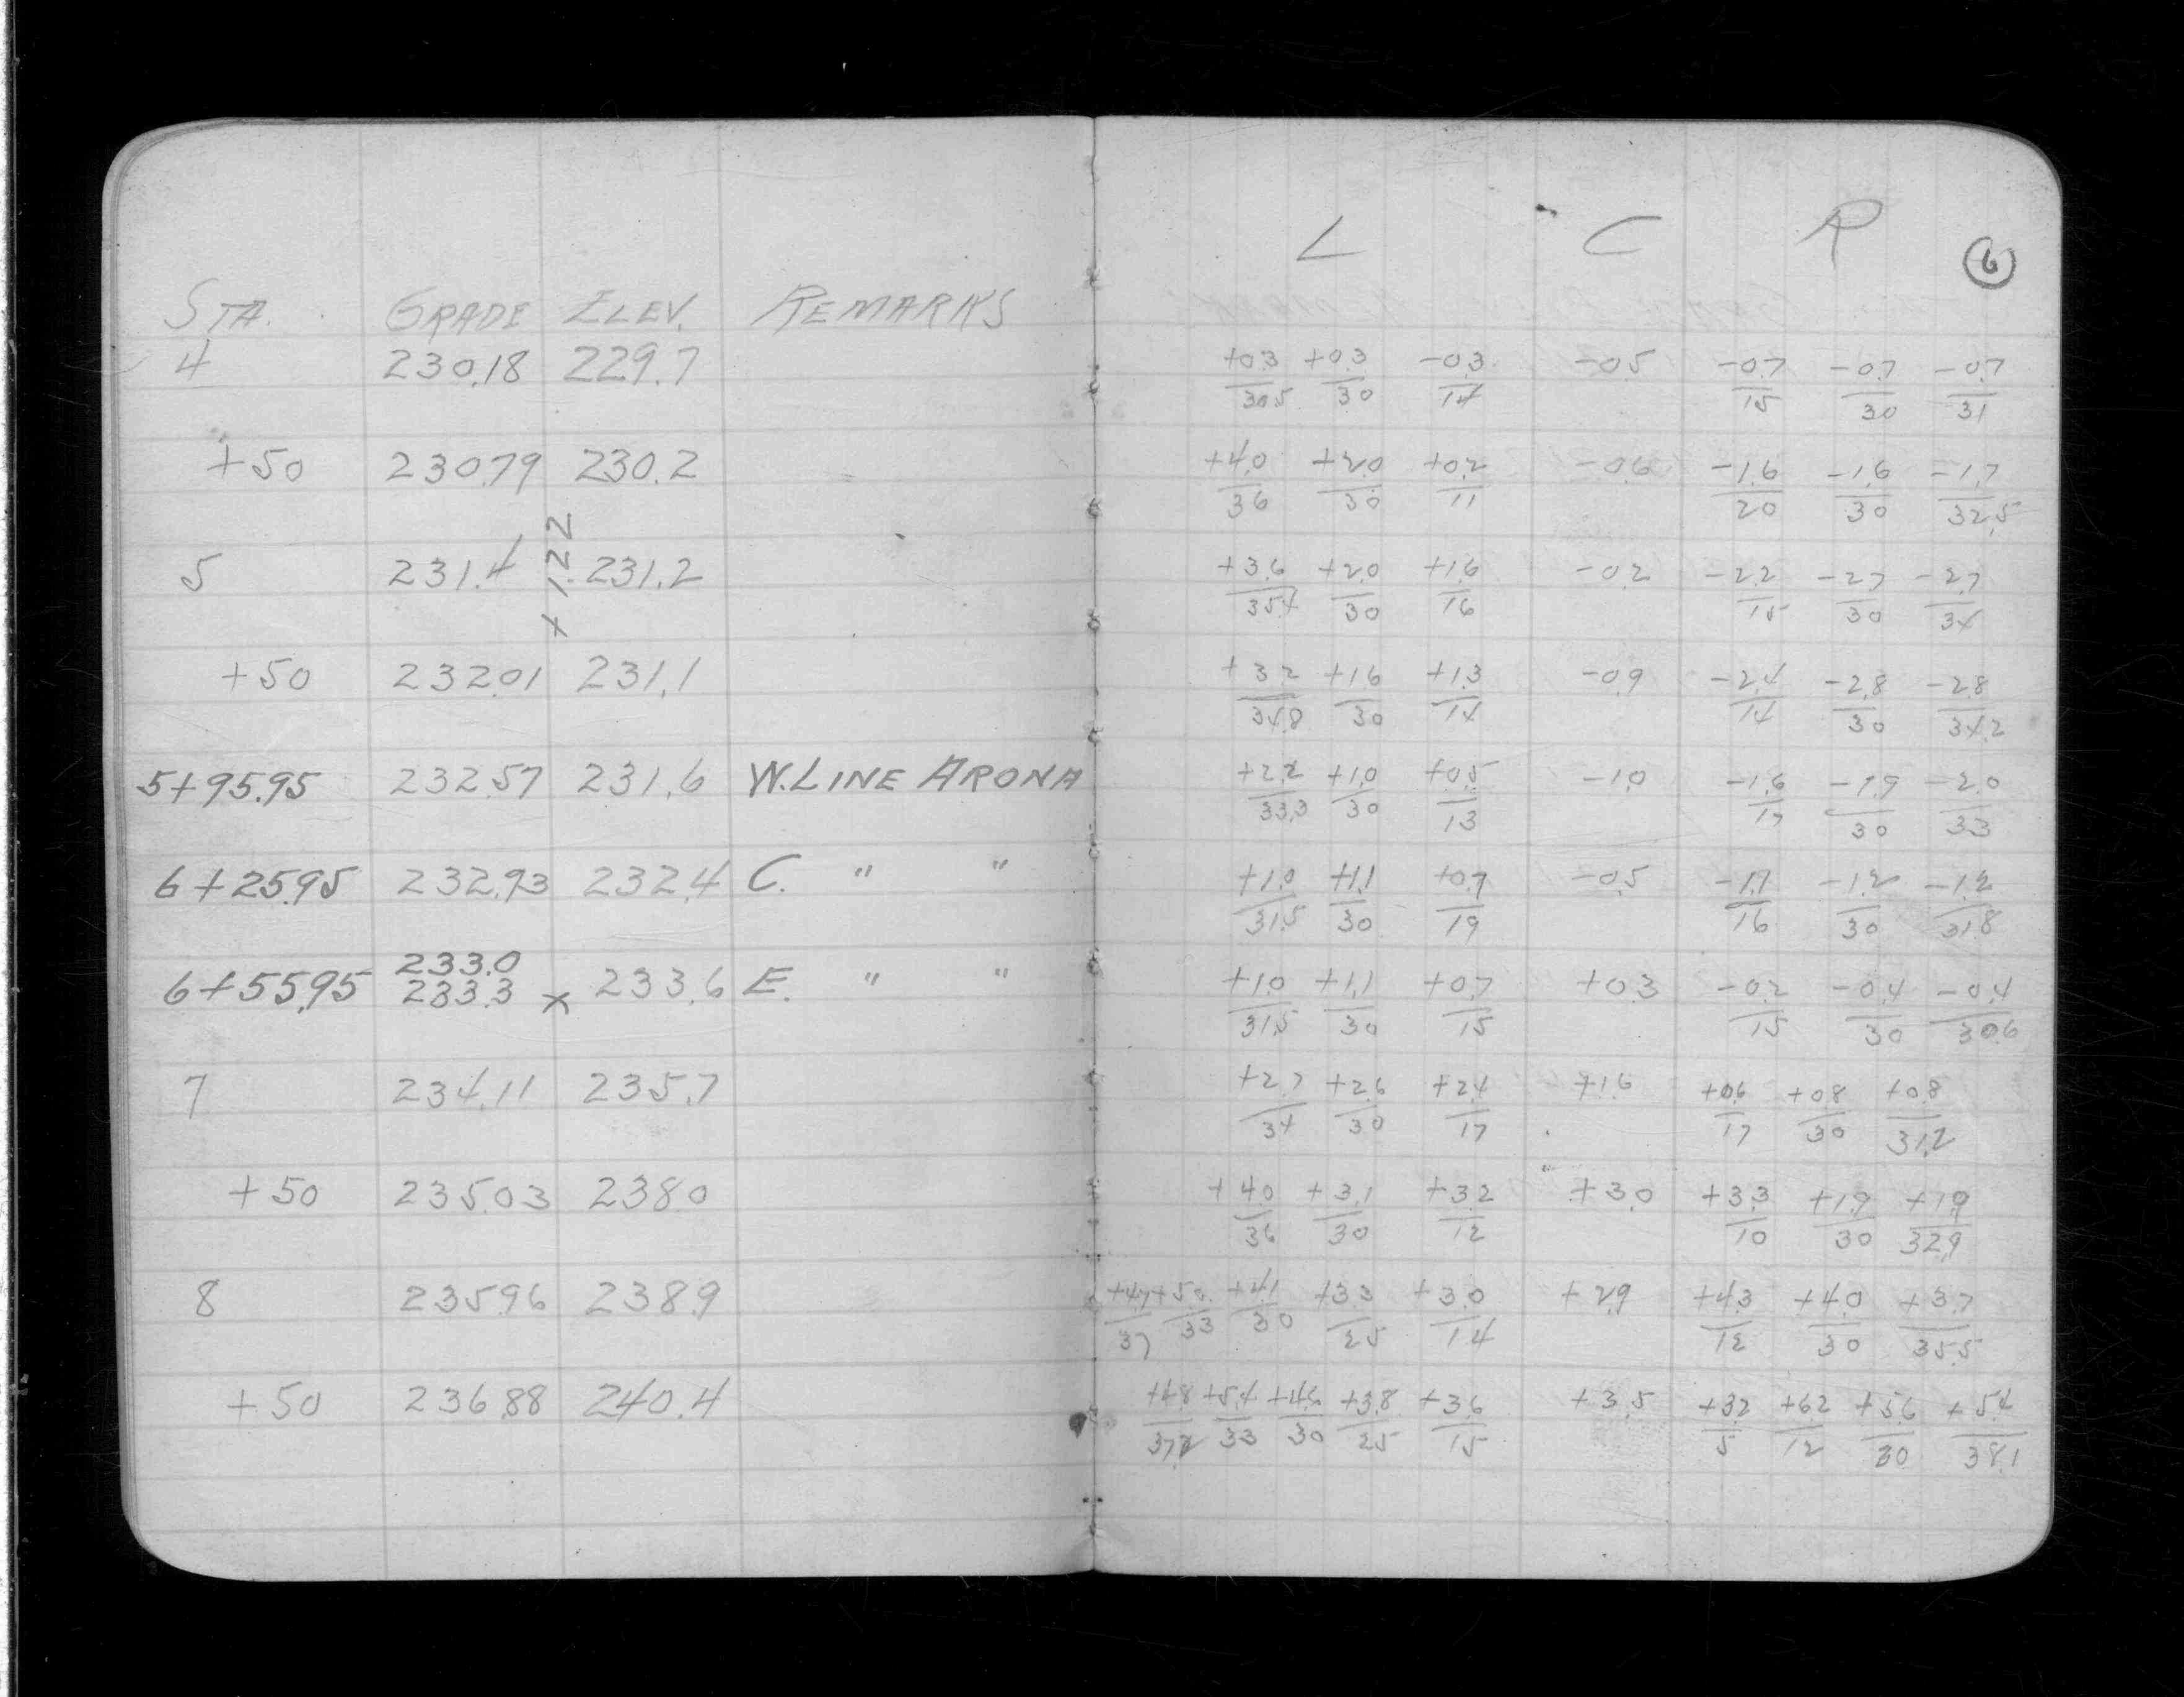 L C R 6
STA. GRADE ELEV. REMARKS
4 230.18 229.7 +0.3/30.5 +0.3/30 -0.3/14 -0.5 -0.7/15 -0.7/30 -0.7/31
+50 230.79 230.2 +4.0/36 +2.0/30 +0.2/11 -0.6 -1.6/20 -1.6/30 -1.7/32.5
+1.22
5 231.4 231.2 +3.6/35.4 +2.0/30 +1.6/16 -0.2 -2.2/15 -2.7/30 -2.7/34
+50 232.01 231.1 +3.2/34.8 +1.6/30 +1.3/14 -0.9 -2.4/14 -2.8/30 -2.8/34.2
5+95.95 232.57 231.6 W. LINE ARONA +2.2/33.3 +1.0/30 +0.5/13 -1.0 -1.6/17 -1.9/30 -2.0/33
6+25.95 232.93 232.4 C. " " +1.0/31.5 +1.1/30 +0.7/19 -0.5 -1.7/16 -1.2/30 -1.2/31.8
233.0
6+55.95 233.3 x 233.6 E. " " +1.0/31.5 +1.1/30 +0.7/15 +0.3 -0.2/15 -0.4/30 -0.4/30.6
7 234.11 235.7 +2.7/34 +2.6/30 +2.4/17 +1.6 +0.6/17 +0.8/30 +0.8/31.2
+50 235.03 238.0 +4.0/36 +3.1/30 +3.2/12 +3.0 +3.3/10 +1.9/30 +1.9/32.9
8 235.96 238.9 +4.7/37 +5.0/33 +4.1/30 +3.3/25 +3.0/14 +2.9 +4.3/12 +4.0/30 +3.7/35.5
+50 236.88 240.4 +4.8/37.2 +5.4/33 +4.6/30 +3.8/25 +3.6/15 +3.5 +3.2/5 +6.2/12 +5.6/30 +5.4/38.1